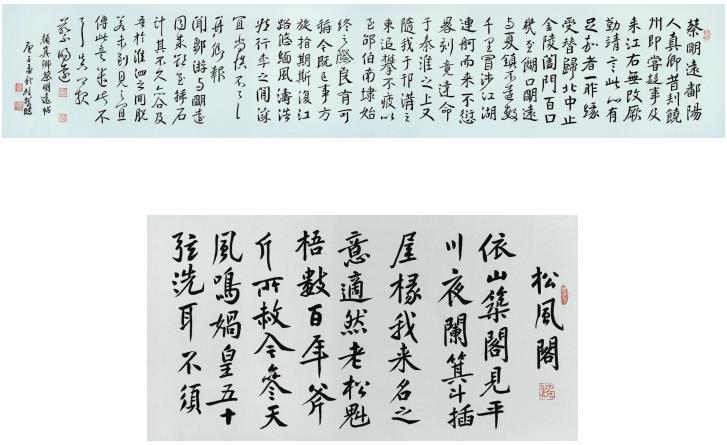 蔡明遠鄱陽
人真卿昔刾饒
州即嘗趨事及
来江右無改厥
勤靖言此心有
足者一昨緣
受替歸北中止
金陵闔門百口
幾至餬口明遠
与夏鎮不遠數
千里冒涉江湖
連舸而来不愆
晷刻竟達命
于秦淮之上又
隨我于邗溝之
東追攀不疲以
至邵伯南埭始
終之際良有可
稱今既已事方
旋指期斯復江
路悠緬風濤浩
然行李之間深
宜尚慎不一一
真卿報
聞鄒游与明遠
同来欲至採石
計其不久亦合及
吾於淮泗之間脫
若未到見之宜
傳此意遣此不
一一真卿報
蔡明遠
顏真卿蔡明遠帖
庚子臨
松風閣
依山築閣見平
川夜闌箕斗插
屋椽我来名之
意適然老松魁
梧數百年斧
斤所赦今參天
風鳴媧皇五十
弦洗耳不須